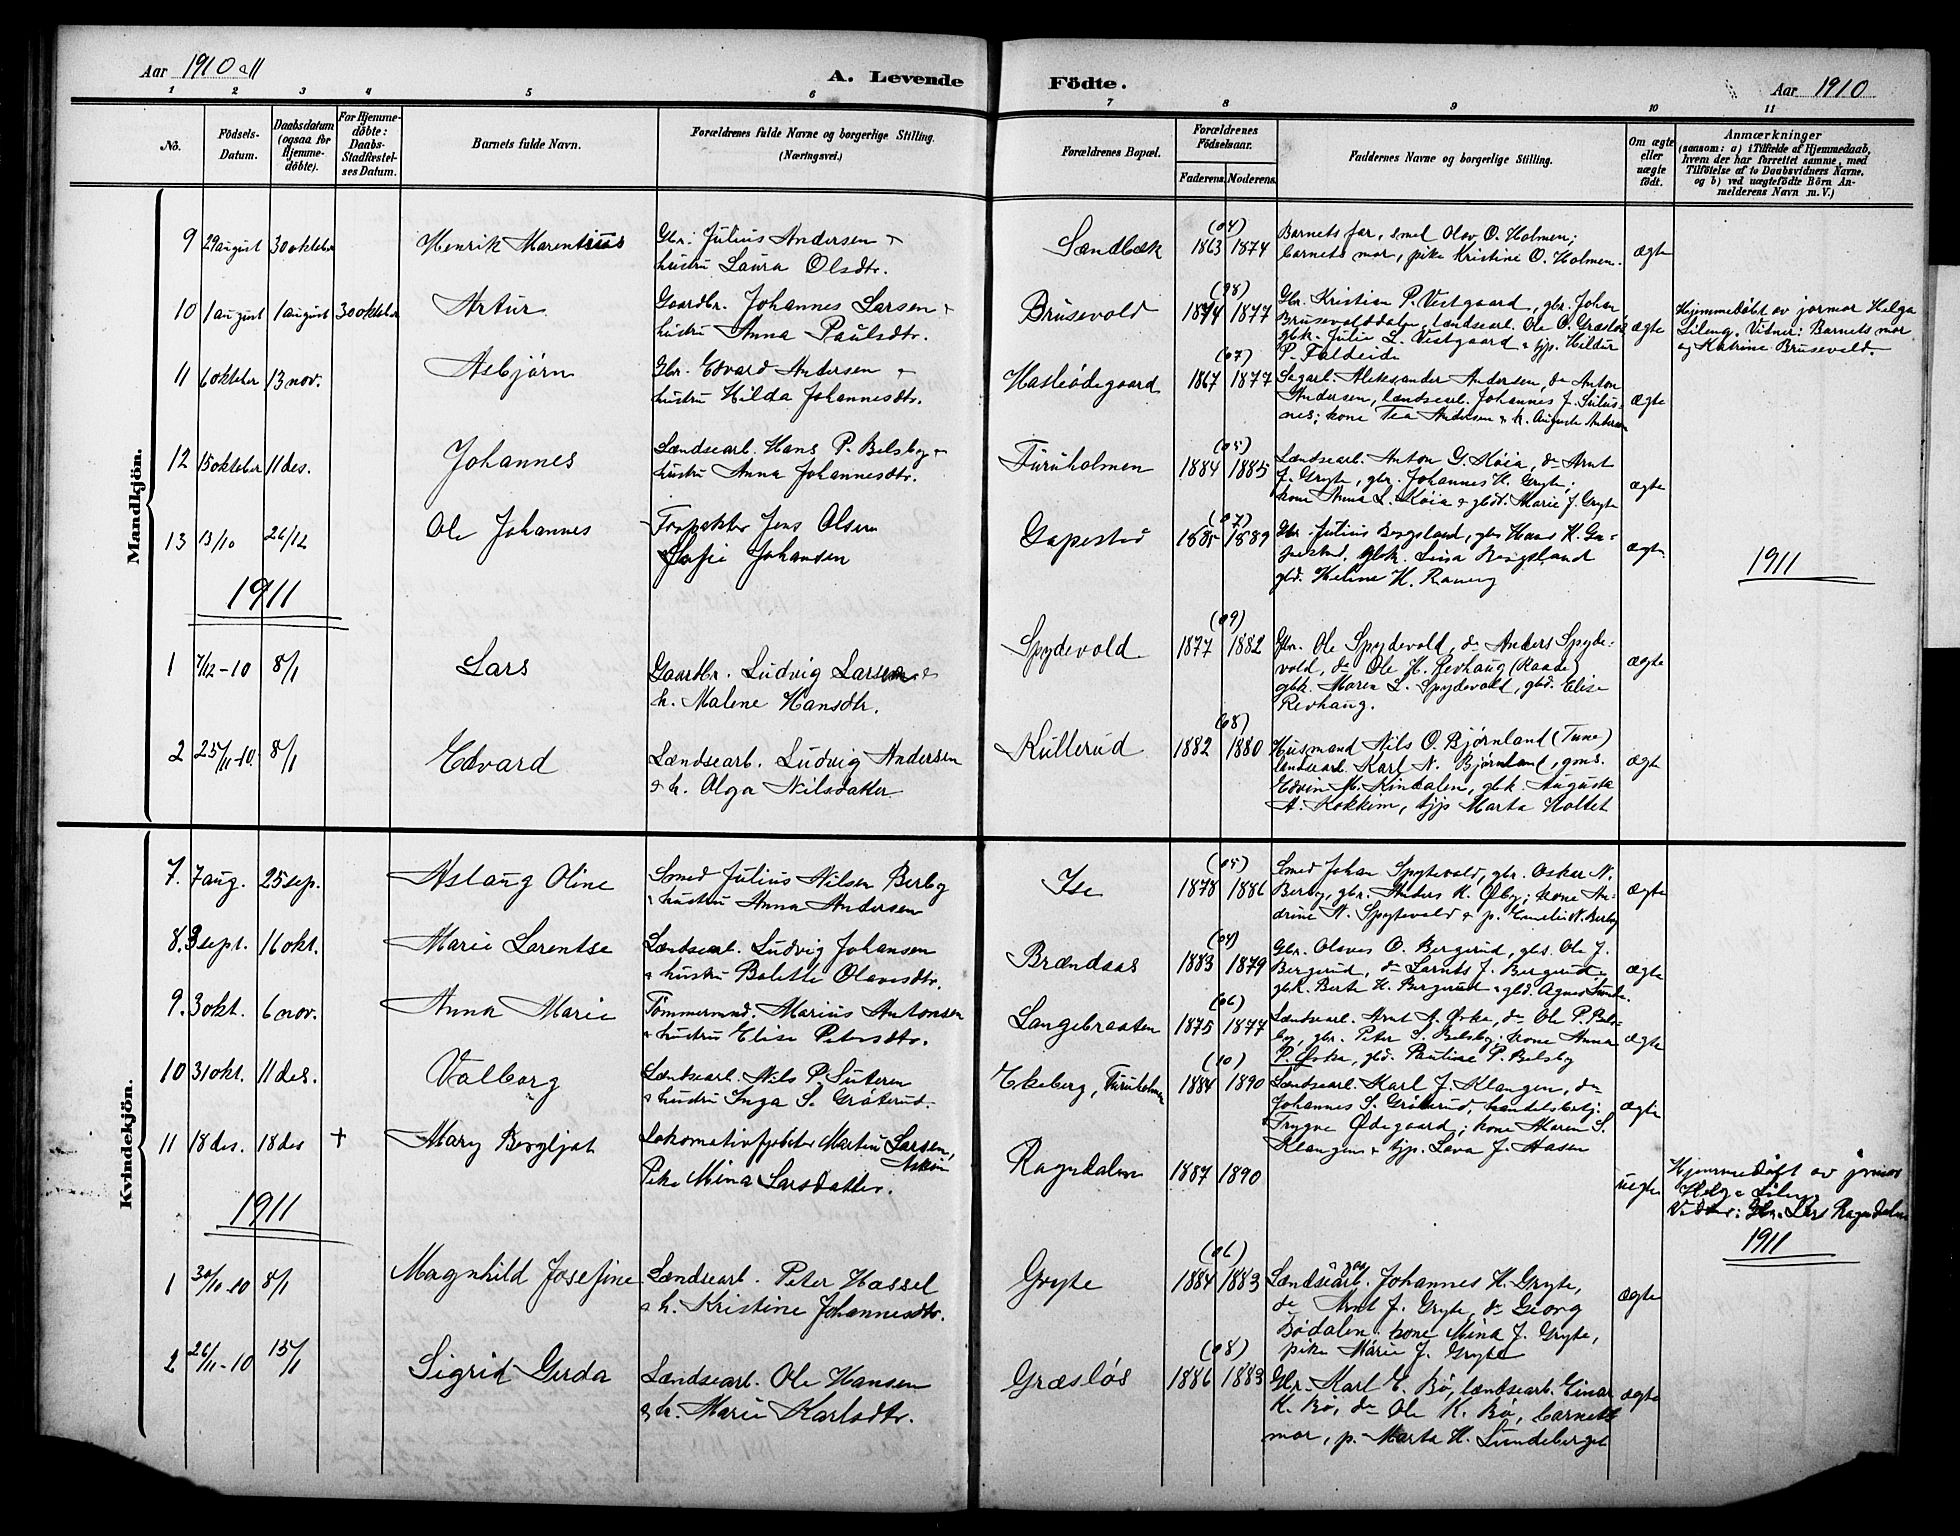 Aar 1910 o 11
A. Levende
Födte.
Aar 1910
1 2 3 4 5 6 7 8 9 10 11
No.
Födsels-
Datum.
Daabsdatum
(ogsaa for
Hjemme-
döbte).
For Hjemme-
döbte:
Daabs-
Stadfæstel-
ses Datum.
Barnets fulde Navn.
Forældrenes fulde Navne og borgerlige Stilling.
(Næringsvei.)
Forældrenes Bopæl.
Forældrenes
Födselsaar.
Faderens. Moderens.
Faddernes Navne og borgerlige Stilling.
Om ægte
eller
uægte
födt.
Anmærkninger
(saasom: a) i Tilfælde af Hjemmedaab,
hvem der har forrettet samme, med
Tilföielse af to Daabsvidners Navne,
og b) ved uægtefödte Börn An-
melderens Navn m. V.)
Mandkjön.
9 29 august 30 oktober
Henrik Marentius
Gbr. Julius Andersen
hustru Laura Olsdtr.
Sandbæk
(04)
1863 1874
Barnets far, smed Olav O. Holmen;
barnets mor, pike Kristine O. Holmen.
ægte
10 1 august 1 august 30 oktober
Artur
Gaardbr. Johannes Larsen
hustru Anna Paulsdtr.
Brusevold
(98)
1874 1877
Gbr. Kristian P. Vestgaard, gbr. Johan
Brusevolddalen, landsearb. Ole O. Græsløs
gbk. Julie L. Vestgaard & tjp. Hildur
P. Faldeide
ægte
Hjemmedøbt av jormor Helga
Lileng. Vidner: Barnets mor
og Katrine Brusevold.
11 6 oktober 13 nov.
Asbjørn
Gbr. Edvard Andersen
hustru Hilda Johannesdtr.
Hasleødegaard
(07)
1867 1877
Sagarb. Aleksander Andersen, do Anton
Andersen, landsearb. Johannes J.
nes; kone Tea Andersen & k. Auguste Andersen
ægte
12 15 oktober 11 des.
Johannes
Landsearb. Hans P. Belsby
hustru Anna Johannesdtr.
Furuholmen
(05)
1884 1885
Landsearb. Anton G. Køia, do Arnt
J. Gryte, gbr. Johannes H. Gryte;
kone Anna L. Køia & gbdt. Marie J. Gryte
ægte
13 13/10 26/12
Ole Johannes
Forpakter Jens Olsen
Sofie Johansen
Gapestad
(07)
1885 1889
Gbr. Julius Bergsland, gbr Hans H. Ga-
pestad, gbk. Lina Bergsland
gbd. Heline H. Ramerg
ægte
1911
1911
1 7/12-10 8/1
Lars
Gaardbr. Ludvig Larsen &
h. Malene Hansdtr.
Spydevold
(09)
1877 1882
Gbr. Ole Spydevold, do Anders Spyde-
vold, do Ole H. Revhaug (Raade)
gbk. Maren L. Spydevold, gbd. Elise
Revhaug.
ægte
2 25/11-10. 8/1
Edvard
Landsearb. Ludvig Andersen
& h. Olga Nilsdatter
Kullerud
(08)
1882 1880
Husmand Nils O. Bjørnland (Tune)
landsearb. Karl N. Bjørnland, gans.
Edvin M. Kindalen, gbk. Augusta
A. Kokkim, tjp Marta Holtet
ægte
Kvindekjön.
7. 7 aug. 25 sep.
Aslaug Oline
Smed Julius Nilsen Berby
& hustru Anna Andersen
Ise
(05)
1878 1886
Smed Johan Spydevold, gbr. Oskar N.
Berby, gbr. Anders K. Øby; kone An-
drine N. Spydevold & p. Emelie N. Berby
ægte
8. 3 sept. 16 okt.
Marie Larentse
Landsearb. Ludvig Johansen
& hustru Bolette Olavesdtr.
Brændaas
(04)
1883 1879
Gbr. Olaves O. Bergerud, gbs. Ole J.
Bergerud, do Larnts J. Bergerud,
gbk. Berte H. Bergerud & gbd. Agnes Tunde.
ægte
9. 3 okt. 6 nov.
Anna Marie
Tømmermnd. Marius Antonsen
& hustru Elise Petersdtr.
Langebraaten
(06)
1875 1877
Landsearb. Arnt A. Ørke, do Ole P. Bels-
by, gbr. Peter S. Belsby, kone Anna
P. Ørke, gbd. Pauline P. Belsby
ægte
10 31 okt. 11 des.
Valborg
Landsearb. Nils P. Suteren
& hustru Inga S. Grøterud.
Ekeberg, Furuholmen
(10)
1884 1890
Landsearb. Karl J. Klangen, do
Johannes S. Grøterud, handelsbetj.
Trygve Ødegaard; kone Maren S.
Klangen & tjp. Lava J. Aasen
ægte
11 18 des. 18 des +
Mary Bergljot
Lokomotivfyrbøter Martin Larsen,
Askim
Pike Mina Larsdatter.
Ragndalen
1887 1890
uægte
Hjemmedøpt av jormor
Helga Lileng
Vidner: Gbr. Lars Ragndalen
1911
1911
1 30/10-10 8/1
Magnhild Josefine
Landsearb. Peter Hassel
& h. Kristine Johannesdtr.
Gryte
(06)
1884 1883
Landsearb. Johannes H. Gryte,
do Arnt J. Gryte, do Georg
Bødalen, kone Mina J. Gryte,
pike Marie J. Gryte
ægte
2 26/11-10 15/1
Sigrid Gerda
Landsearb. Ole Hansen
& h. Marie Karlsdtr.
Græsløs
(08)
1886 1883
Gbr. Karl E. Bø, landsearb. Einar
K. Bø, do Ole K. Bø, barnets
mor, p. Marta H. Lundeberget
ægte